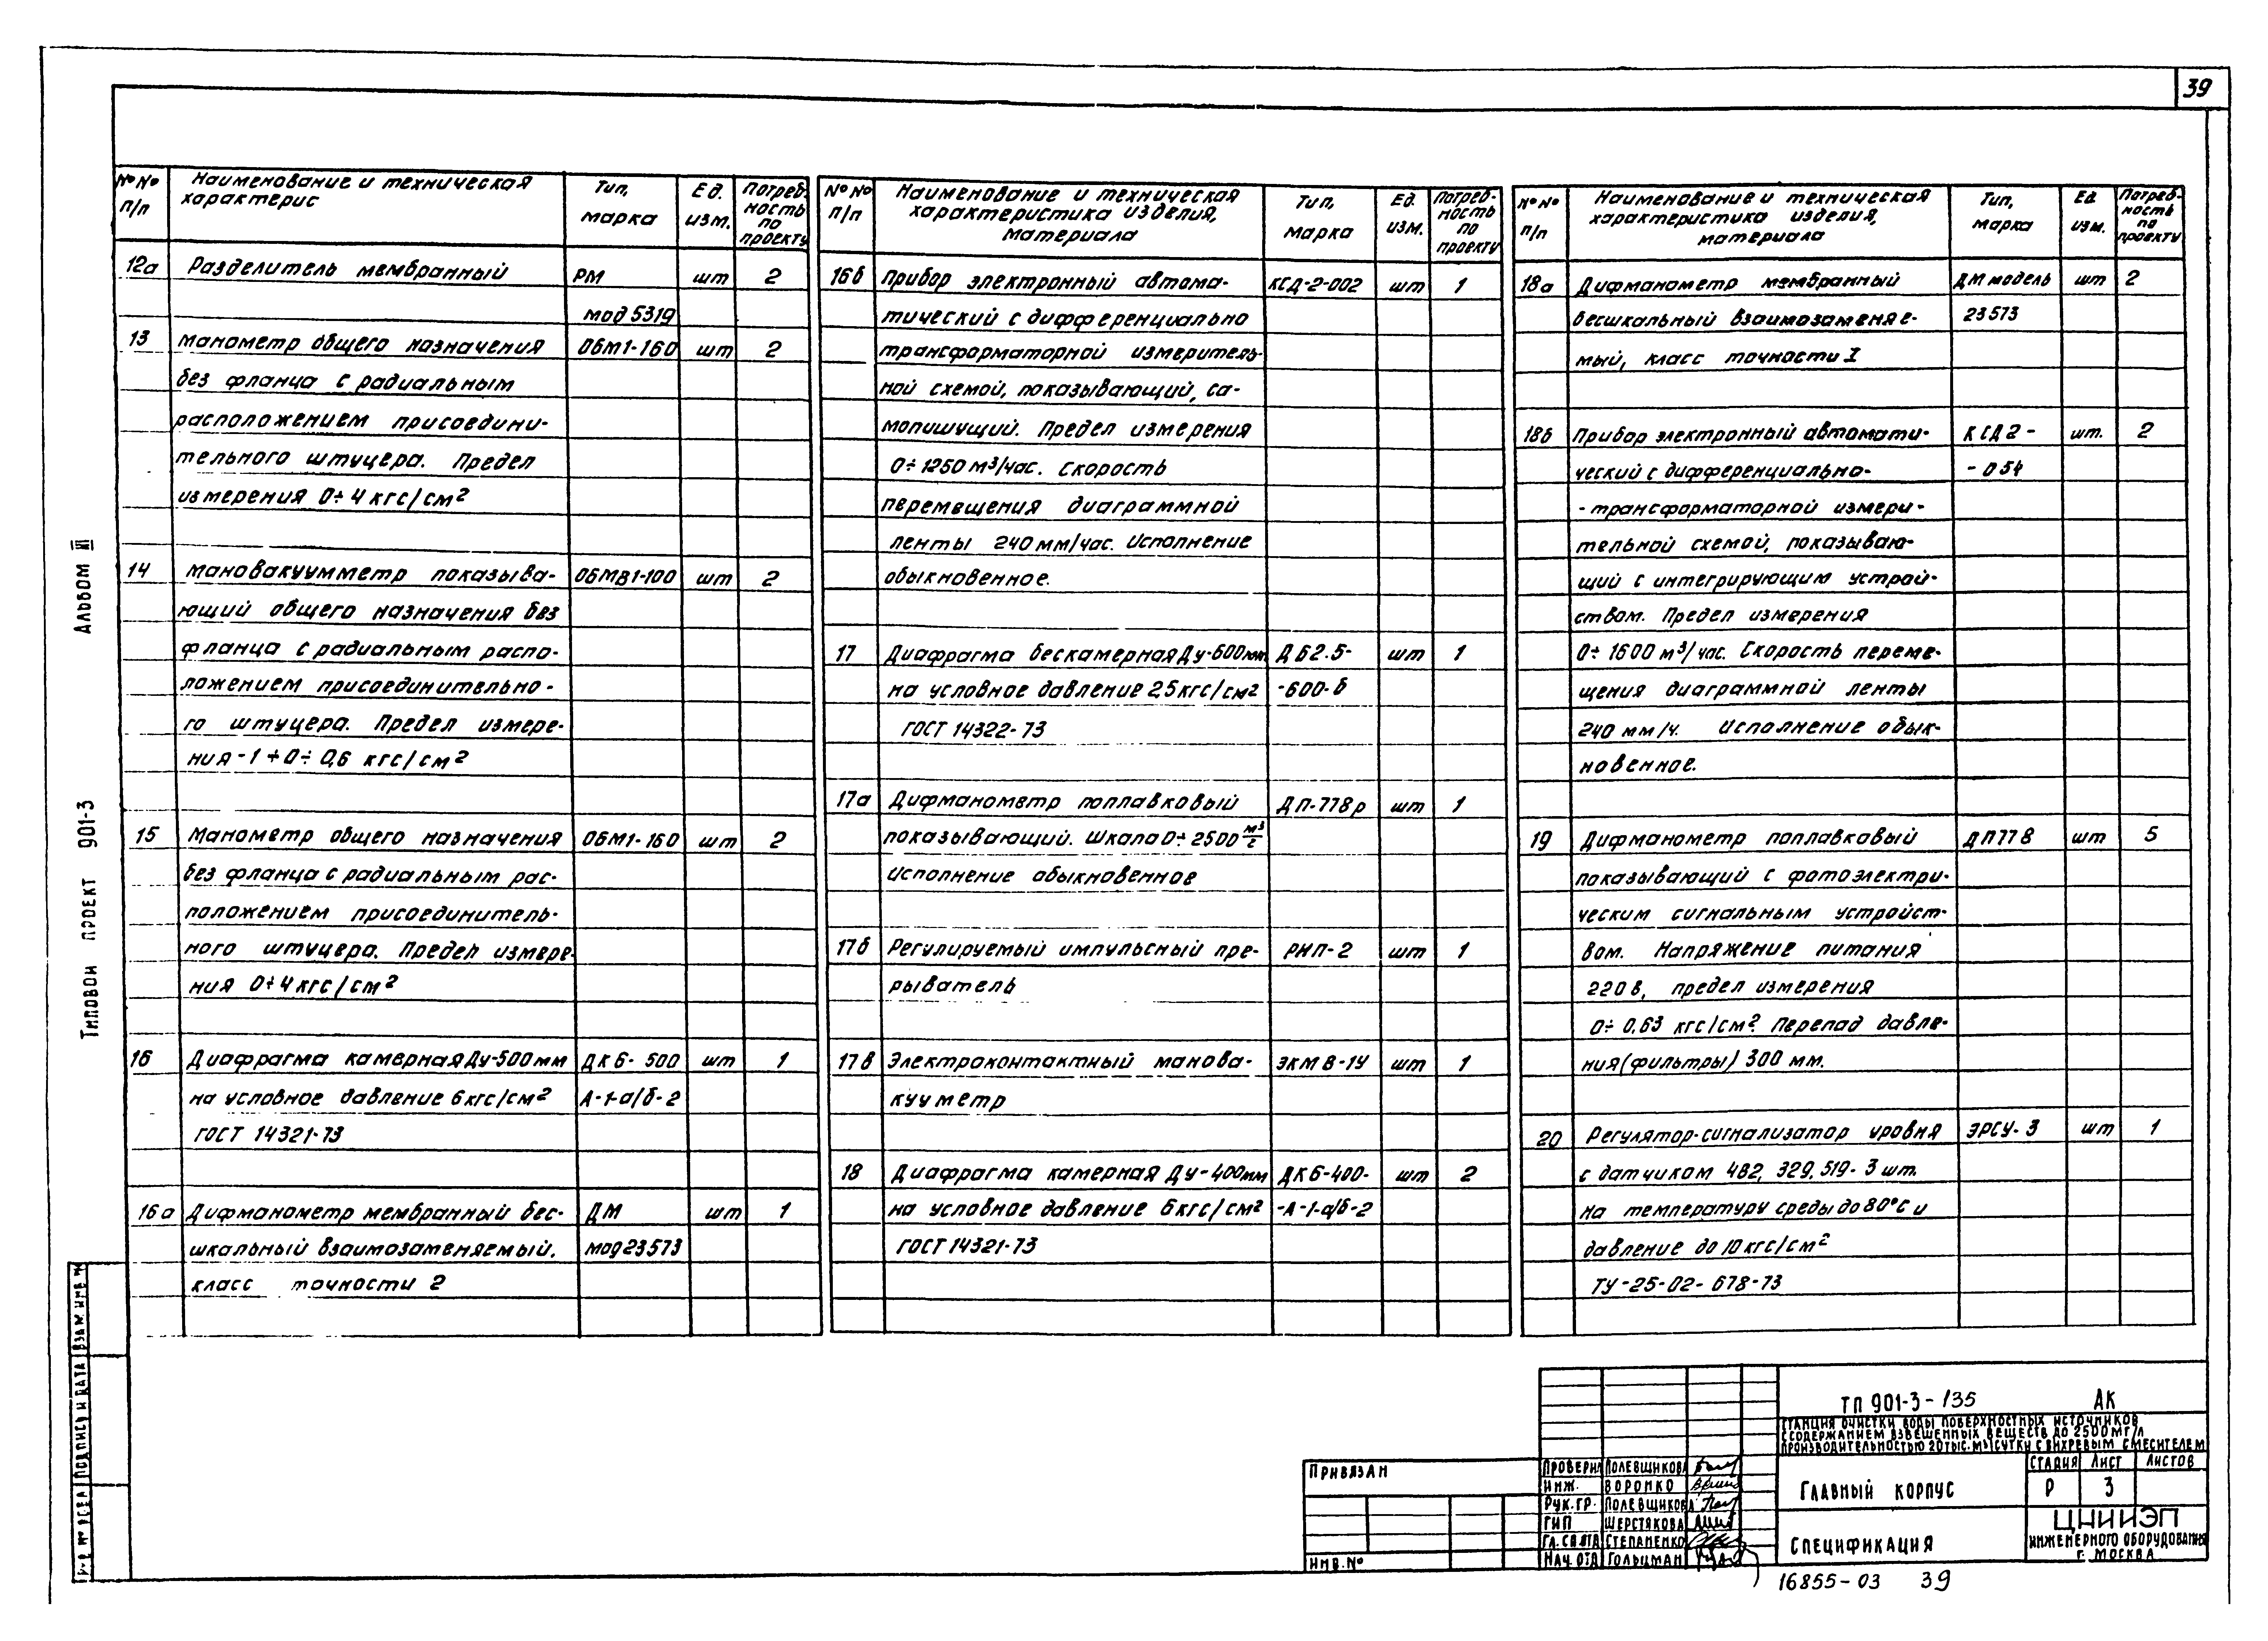 39
№№ п/п
Наименование и техническая характерис
Тип, марка
Ед. изм.
Потреб-ность по проекту
12а Разделитель мембранный РМ шт 2
мод 5319
13 Манометр общего назначения ОБМ1-160 шт 2
без фланца с радиальным
расположением присоедини-
тельного штуцера. Предел
измерения 0÷4 кгс/см²
14 Мановакуумметр показыва- ОБМВ1-100 шт 2
ющий общего назначения без
фланца с радиальным распо-
ложением присоединительно-
го штуцера. Предел измере-
ния -1÷0÷0,6 кгс/см²
15 Манометр общего назначения ОБМ1-160 шт 2
без фланца с радиальным рас-
положением присоединитель-
ного штуцера. Предел измере-
ния 0÷4 кгс/см²
16 Диафрагма камерная Ду-500мм ДК6-500 шт 1
на условное давление 6 кгс/см² А-1-а/б-2
ГОСТ 14321-73
16а Дифманометр мембранный бес- ДМ шт 1
шкальный взаимозаменяемый, мод 23573
класс точности 2
№№ п/п
Наименование и техническая характеристика изделия, материала
Тип, марка
Ед. изм.
Потреб-ность по проекту
16б Прибор электронный автома- КСД-2-002 шт 1
тический с дифференциально
трансформаторной измеритель-
ной схемой, показывающий, са-
мопишущий. Предел измерения
0÷1250 м³/час. Скорость
перемещения диаграммной
ленты 240 мм/час. Исполнение
обыкновенное.
17 Диафрагма бескамерная Ду-600мм ДБ2.5- шт 1
на условное давление 2,5 кгс/см² -600-б
ГОСТ 14322-73
17а Дифманометр поплавковый ДП-778р шт 1
показывающий. Шкала 0÷2500 м³/г
Исполнение обыкновенное
17б Регулируемый импульсный пре- РИП-2 шт 1
рыватель
17в Электроконтактный манова- ЭКМВ-1У шт 1
куумметр
18 Диафрагма камерная Ду-400мм ДК6-400- шт 2
на условное давление 6 кгс/см² -А-1-а/б-2
ГОСТ 14321-73
№№ п/п
Наименование и техническая характеристика изделия, материала
Тип, марка
Ед. изм.
Потреб-ность по проекту
18а Дифманометр мембранный ДМ модель шт 2
бесшкальный взаимозаменяе- 23573
мый, класс точности I
18б Прибор электронный автомати- КСД2- шт. 2
ческий с дифференциально- -054
-трансформаторной измери-
тельной схемой, показываю-
щий с интегрирующим устрой-
ством. Предел измерения
0÷1600 м³/час. Скорость переме-
щения диаграммной ленты
240 мм/ч. Исполнение обык-
новенное.
19 Дифманометр поплавковый ДП778 шт 5
показывающий с фотоэлектри-
ческим сигнальным устройст-
вом. Напряжение питания
220 в, предел измерения
0÷0,63 кгс/см². Перепад давле-
ния (фильтры) 300 мм.
20 Регулятор-сигнализатор уровня ЭРСУ-3 шт 1
с датчиком 4В2, 329, 519-3 шт.
на температуру среды до 80°С и
давление до 10 кгс/см²
ТУ-25-02-678-73
Альбом III
Типовой проект 901-3
Взам. инв. №
Подпись и дата
Привязан
Инв. №
Проверил Полевщикова
Инж. Воронко
Рук. гр. Полевщикова
ГИП Шерстякова
Гл. сп. отд Степаненко
Нач. отд Гольцман
ТП 901-3-135 АК
Станция очистки воды поверхностных источников
с содержанием взвешенных веществ до 2500 мг/л
производительностью 20 тыс. м³/сутки с вихревым смесителем
Главный корпус
Стадия Лист Листов
Р 3
Спецификация
ЦНИИЭП
инженерного оборудования
г. Москва
16855-03 39